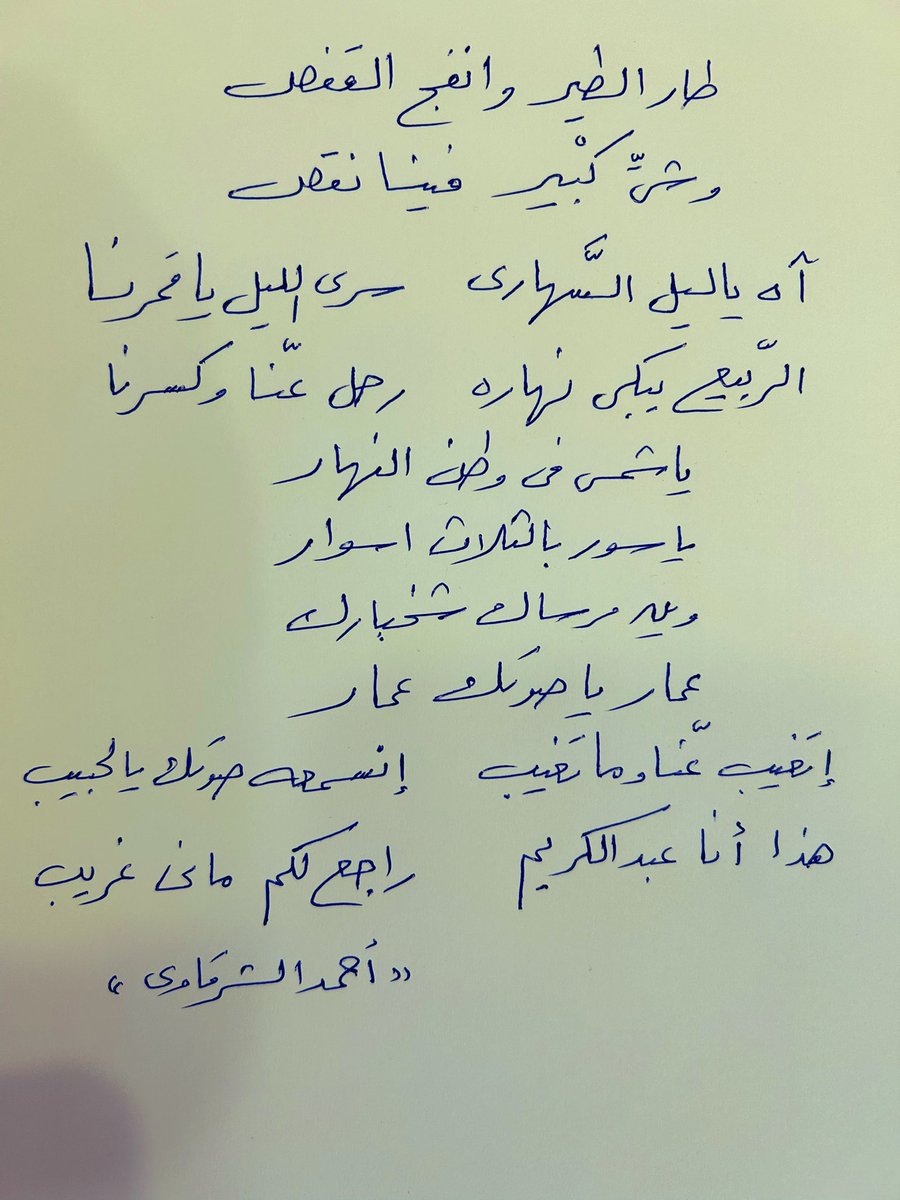 طار الطير وانفج القفص
وشيٍّ كبْير فينا نقص
آه ياليل السَّهارى سرى الليل ياقمرنا
الرّبيع يبكى نهاره رحل عنّا وكسرنا
ياشمس فى وطن النهار
ياسور بالثلاث اسوار
وين مرساك شخبارك
عمار ياصوتك عمار
إتغيب عنّا وماتغيب إنسمعه صوتك يالحبيب
هذا أنا عبدالكريم راجع لكم مانى غريب
«أحمد الشرقاوى»